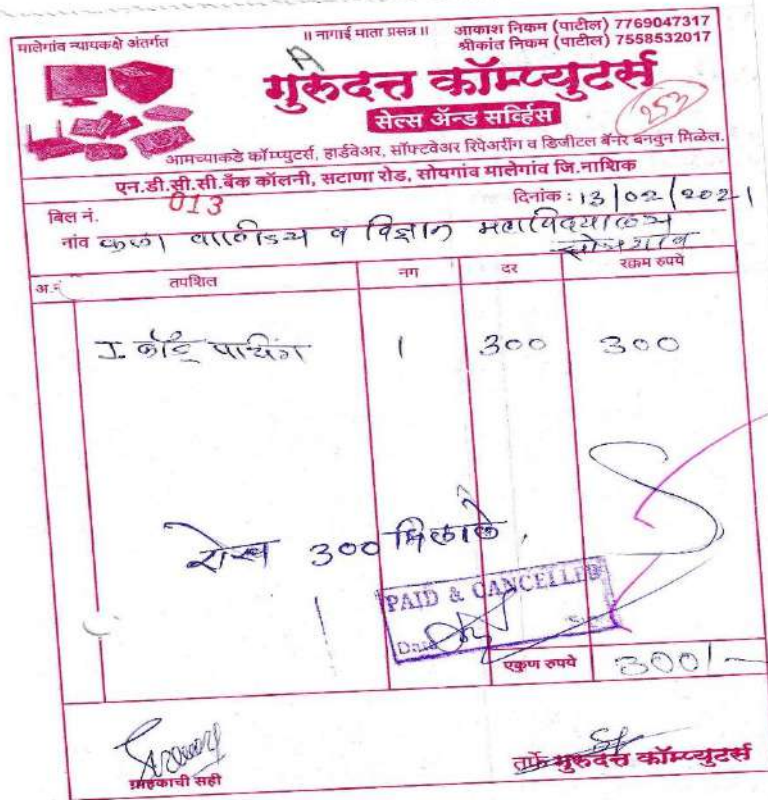 मालेगांव न्यायकक्षे अंतर्गत
॥ नागाई माता प्रसन्न ॥
आकाश निकम (पाटील) 7769047317
श्रीकांत निकम (पाटील) 7558532017
A
गुरुदत्त कॉम्प्युटर्स
सेल्स ॲन्ड सर्व्हिस
253
आमच्याकडे कॉम्प्युटर्स, हार्डवेअर, सॉफ्टवेअर रिपेअरींग व डिजीटल बॅनर बनवुन मिळेल.
एन.डी.सी.सी.बँक कॉलनी, सटाणा रोड, सोयगांव मालेगांव जि.नाशिक
बिल नं. 013
दिनांक : 13/02/2021
नांव कला वाणिज्य व विज्ञान महाविद्यालय
अ.नं तपशिल नग दर रक्कम रुपये
I कार्ड 1 300 300
रोख 300 मिळाले.
PAID & CANCELLED
Date
एकुण रुपये 300/-
ग्राहकाची सही
तर्फे गुरुदत्त कॉम्प्युटर्स